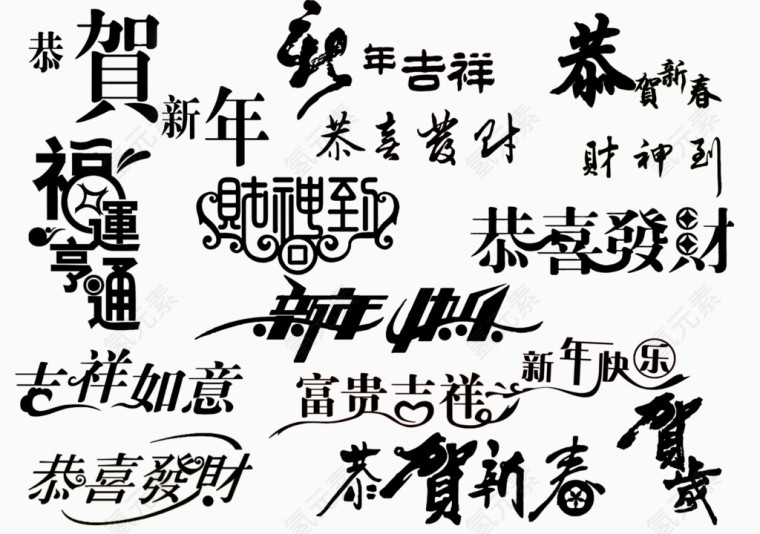 恭賀新年
新年吉祥
恭賀新春
恭喜發財
財神到
福運亨通
財神到
恭喜發財
新年快乐
新年快乐
吉祥如意
富贵吉祥
恭喜發財
恭賀新春
賀歲
氢元素